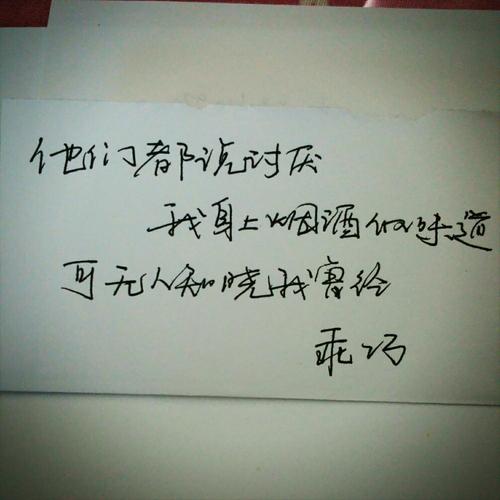 他们都说讨厌
我身上烟酒的味道
可无人知晓我曾经
乖巧